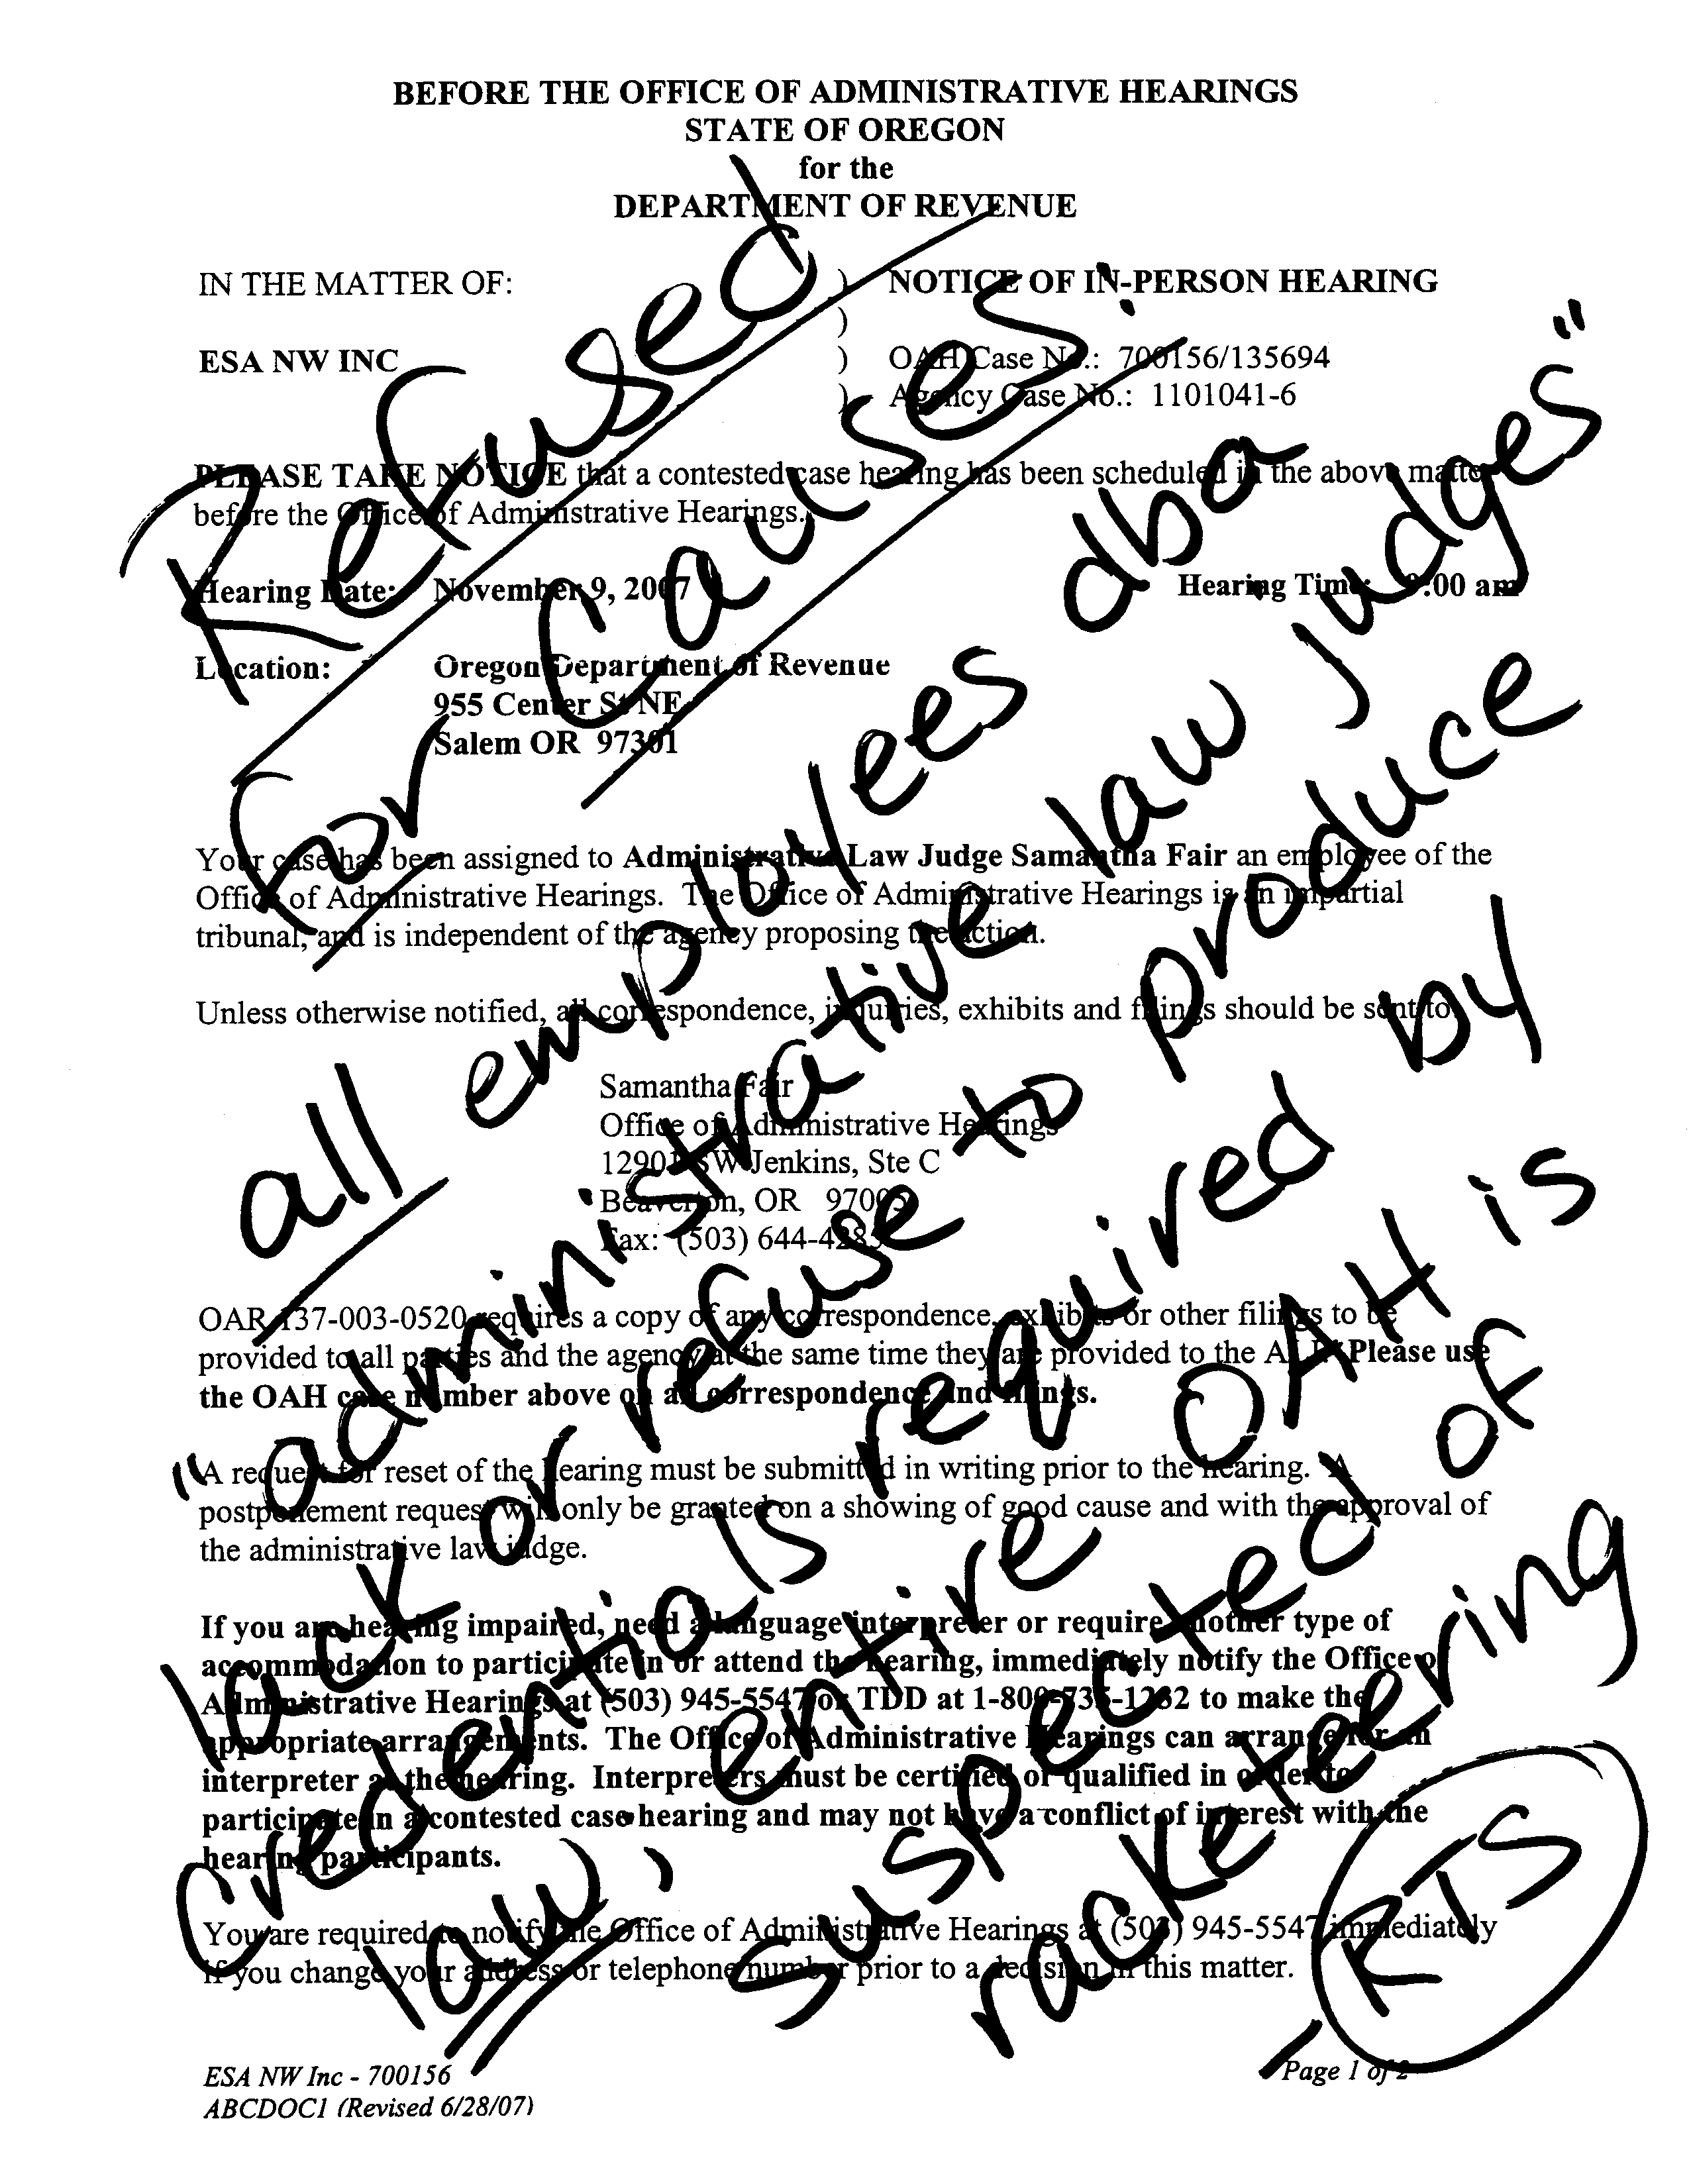 BEFORE THE OFFICE OF ADMINISTRATIVE HEARINGS
STATE OF OREGON
for the
DEPARTMENT OF REVENUE
IN THE MATTER OF: ) NOTICE OF IN-PERSON HEARING
)
ESA NW INC ) OAH Case No.: 700156/135694
) Agency Case No.: 1101041-6
PLEASE TAKE NOTICE that a contested case hearing has been scheduled in the above matter
before the Office of Administrative Hearings.
Hearing Date: November 9, 2007 Hearing Time: 9:00 am
Location: Oregon Department of Revenue
955 Center St NE
Salem OR 97301
Your case has been assigned to Administrative Law Judge Samantha Fair an employee of the
Office of Administrative Hearings. The Office of Administrative Hearings is an impartial
tribunal, and is independent of the agency proposing the action.
Unless otherwise notified, all correspondence, inquiries, exhibits and filings should be sent to:
Samantha Fair
Office of Administrative Hearings
12901 SW Jenkins, Ste C
Beaverton, OR 97005
Fax: (503) 644-4285
OAR 137-003-0520 requires a copy of any correspondence, exhibits or other filings to be
provided to all parties and the agency at the same time they are provided to the ALJ. Please use
the OAH case number above on all correspondence and filings.
A request for reset of the hearing must be submitted in writing prior to the hearing. A
postponement request will only be granted on a showing of good cause and with the approval of
the administrative law judge.
If you are hearing impaired, need a language interpreter or require another type of
accommodation to participate in or attend the hearing, immediately notify the Office of
Administrative Hearings at (503) 945-5547 or TDD at 1-800-735-1232 to make the
appropriate arrangements. The Office of Administrative Hearings can arrange for an
interpreter at the hearing. Interpreters must be certified or qualified in order to
participate in a contested case hearing and may not have a conflict of interest with the
hearing participants.
You are required to notify the Office of Administrative Hearings at (503) 945-5547 immediately
if you change your address or telephone number prior to a decision in this matter.
ESA NW Inc - 700156 Page 1 of 2
ABCDOC1 (Revised 6/28/07)
Refused
For Causes:
all employees dba
"administrative law judges"
lack or refuse to produce
credentials required by
law, entire OAH is
suspected of
racketeering
- RTS